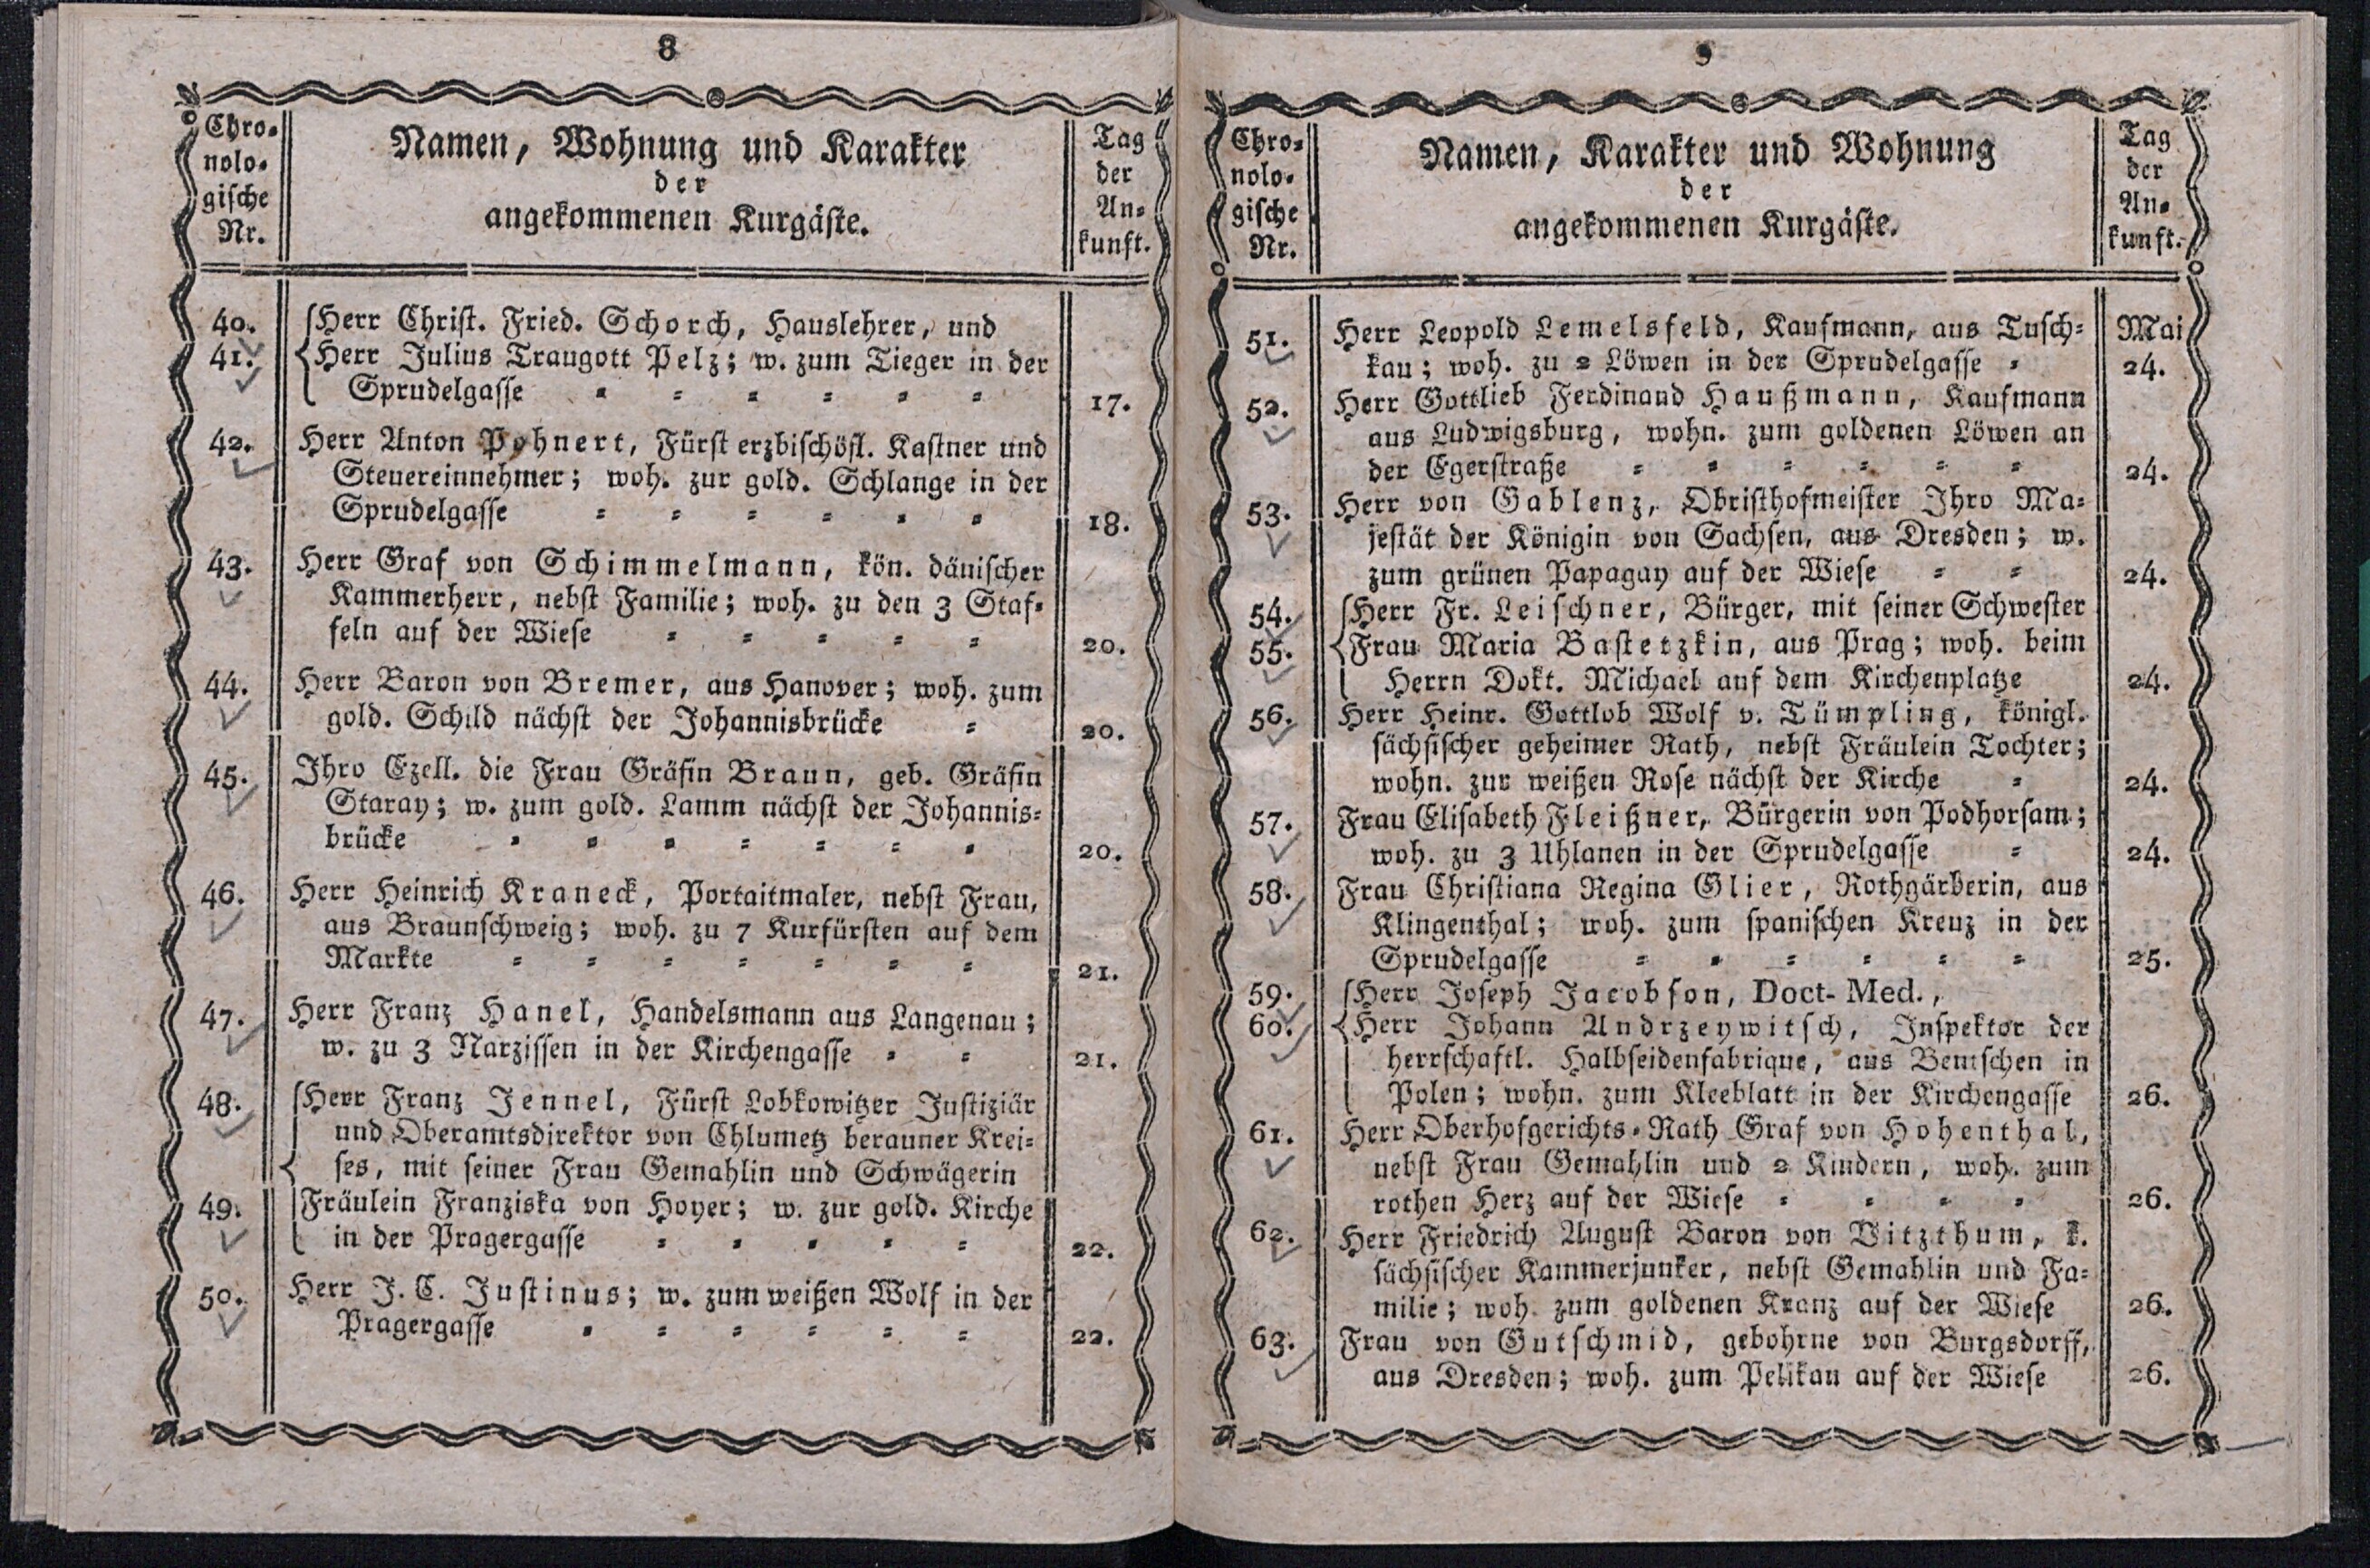 8
Chro-
nolo-
gische
Nr.
Namen, Wohnung und Karakter
der
angekommenen Kurgäste.
Tag
der
An-
kunft.
40. Herr Christ. Fried. Schorch, Hauslehrer, und
41. Herr Julius Traugott Pelz; w. zum Tieger in der
Sprudelgasse - - - - - - 17.
42. Herr Anton Pohnert, Fürst erzbischöfl. Kastner und
Steuereinnehmer; woh. zur gold. Schlange in der
Sprudelgasse - - - - - - 18.
43. Herr Graf von Schimmelmann, kön. dänischer
Kammerherr, nebst Familie; woh. zu den 3 Staf-
feln auf der Wiese - - - - - 20.
44. Herr Baron von Bremer, aus Hanover; woh. zum
gold. Schild nächst der Johannisbrücke - 20.
45. Ihro Ezell. die Frau Gräfin Braun, geb. Gräfin
Staray; w. zum gold. Lamm nächst der Johannis-
brücke - - - - - - - 20.
46. Herr Heinrich Kraneck, Portaitmaler, nebst Frau,
aus Braunschweig; woh. zu 7 Kurfürsten auf dem
Markte - - - - - - - 21.
47. Herr Franz Hanel, Handelsmann aus Langenau;
w. zu 3 Narzissen in der Kirchengasse - - 21.
48. Herr Franz Jennel, Fürst Lobkowitzer Justiziär
und Oberamtsdirektor von Chlumetz berauner Krei-
ses, mit seiner Frau Gemahlin und Schwägerin
49. Fräulein Franziska von Hoyer; w. zur gold. Kirche
in der Pragergasse - - - - - 22.
50. Herr J. C. Justinus; w. zum weißen Wolf in der
Pragergasse - - - - - - 22.
9
Chro-
nolo-
gische
Nr.
Namen, Karakter und Wohnung
der
angekommenen Kurgäste.
Tag
der
An-
kunft.
51. Herr Leopold Lemelsfeld, Kaufmann, aus Tusch- Mai
kau; woh. zu 2 Löwen in der Sprudelgasse - 24.
52. Herr Gottlieb Ferdinand Haußmann, Kaufmann
aus Ludwigsburg, wohn. zum goldenen Löwen an
der Egerstraße - - - - - - 24.
53. Herr von Gablenz, Obristhofmeister Ihro Ma-
jestät der Königin von Sachsen, aus Dresden; w.
zum grünen Papagay auf der Wiese - - 24.
54. Herr Fr. Leischner, Bürger, mit seiner Schwester
55. Frau Maria Bastetzkin, aus Prag; woh. beim
Herrn Dokt. Michael auf dem Kirchenplatze 24.
56. Herr Heinr. Gottlob Wolf v. Tümpling, königl.
sächsischer geheimer Rath, nebst Fräulein Tochter;
wohn. zur weißen Rose nächst der Kirche - 24.
57. Frau Elisabeth Fleißner, Bürgerin von Podhorsam;
woh. zu 3 Uhlanen in der Sprudelgasse - 24.
58. Frau Christiana Regina Glier, Rothgärberin, aus
Klingenthal; woh. zum spanischen Kreuz in der
Sprudelgasse - - - - - - 25.
59. Herr Joseph Jacobson, Doct- Med.,
60. Herr Johann Andrzeywitsch, Inspektor der
herrschaftl. Halbseidenfabrique, aus Bentschen in
Polen; wohn. zum Kleeblatt in der Kirchengasse 26.
61. Herr Oberhofgerichts-Rath Graf von Hohenthal,
nebst Frau Gemahlin und 2 Kindern, woh. zum
rothen Herz auf der Wiese - - - - 26.
62. Herr Friedrich August Baron von Vitzthum, k.
sächsischer Kammerjunker, nebst Gemahlin und Fa-
milie; woh. zum goldenen Kranz auf der Wiese 26.
63. Frau von Gutschmid, gebohrne von Burgsdorff,
aus Dresden; woh. zum Pelikan auf der Wiese 26.